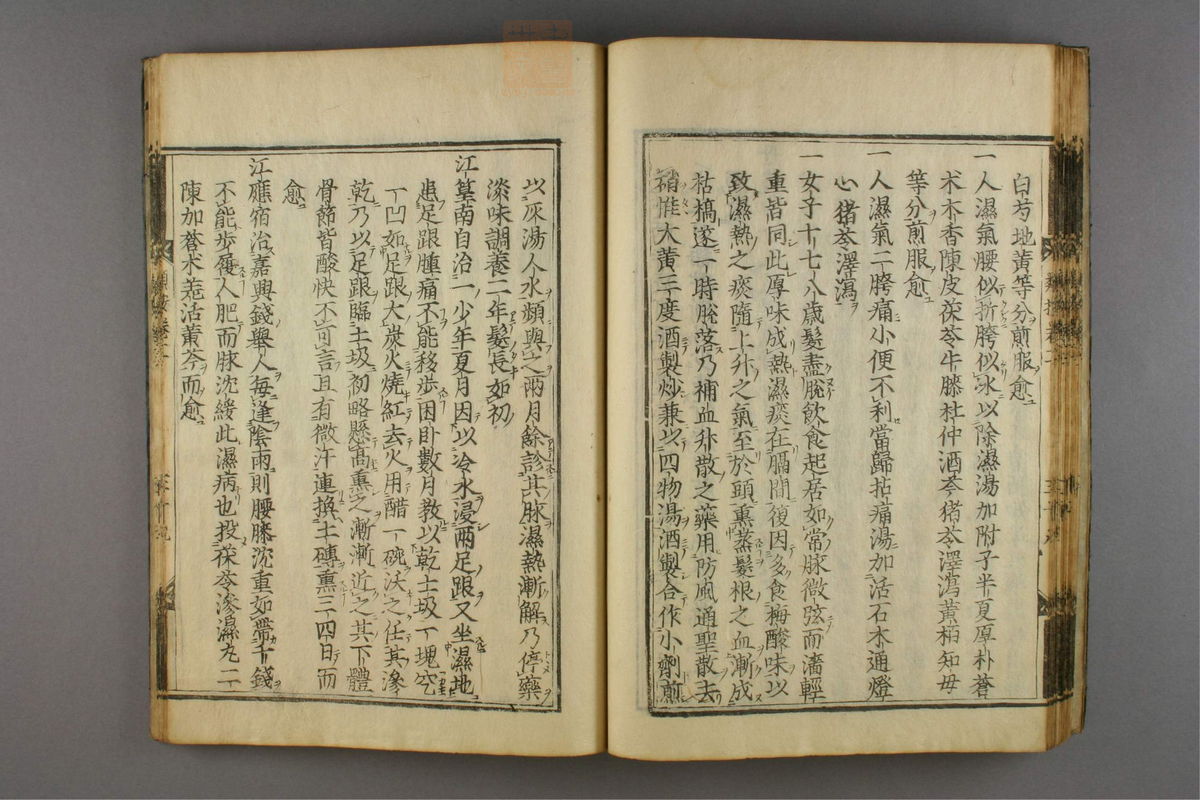 白芍地黄等分煎服愈
一人濕氣腰似折胯似氷以除濕湯加附子半夏厚朴蒼
术木香陳皮茯苓牛膝杜仲酒芩猪苓澤瀉黄栢知母
等分煎服愈
一人濕氣二胯痛小便不利當歸拈痛湯加活石木通燈
心猪苓澤瀉
一女子十七八歳髮盡脱飲食起居如常脉微弦而濇輕
重皆同此厚味成熱濕痰在膈間復因多食梅酸味以
致濕熱之痰隨上升之氣至於頭熏蒸髮根之血漸成
枯槁遂一時脱落乃補血升散之藥用防風通聖散去
硝惟大黄三度酒製炒兼以四物湯酒製合作小劑煎
以灰湯入水頻與之兩月餘診其脉濕熱漸解乃停藥
淡味調養二年髮長如初
江篁南自治一少年夏月因以冷水浸兩足跟又坐濕地
患足跟腫痛不能移歩困卧數月教以乾土圾一塊空
一凹如足跟大炭火燒紅去火用醋一碗沃之任其滲
乾乃以足跟臨土圾初略懸高熏之漸漸近之其下體
骨節皆酸快不可言且有微汗連換土磚熏三四日而
愈
江應宿治嘉興錢舉人毎逢陰雨則腰膝沈重如帶千錢
不能歩履人肥而脉沈緩此濕病也投茯苓滲濕丸二
陳加蒼术羗活黄芩而愈